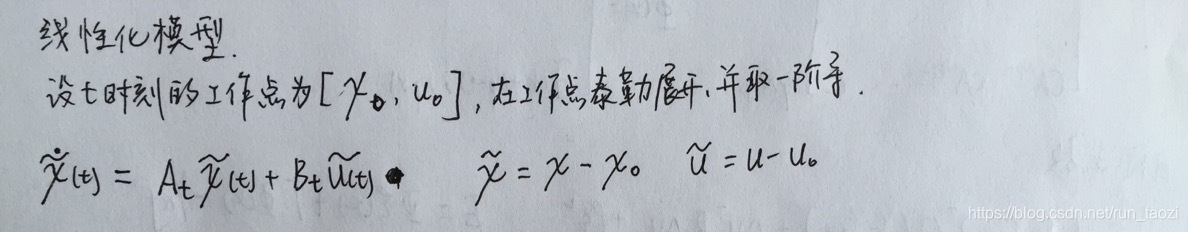 线性化模型.
设t时刻的工作点为[χ₀, u₀], 在工作点泰勒展开, 并取一阶导.
χ̃̇(t) = Aₜ χ̃(t) + Bₜ ũ(t) χ̃ = χ - χ₀ ũ = u - u₀
https://blog.csdn.net/run_taozi